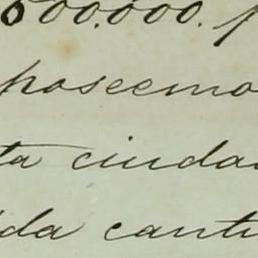 600.000. p
poseemo
ta ciudad
ida canti